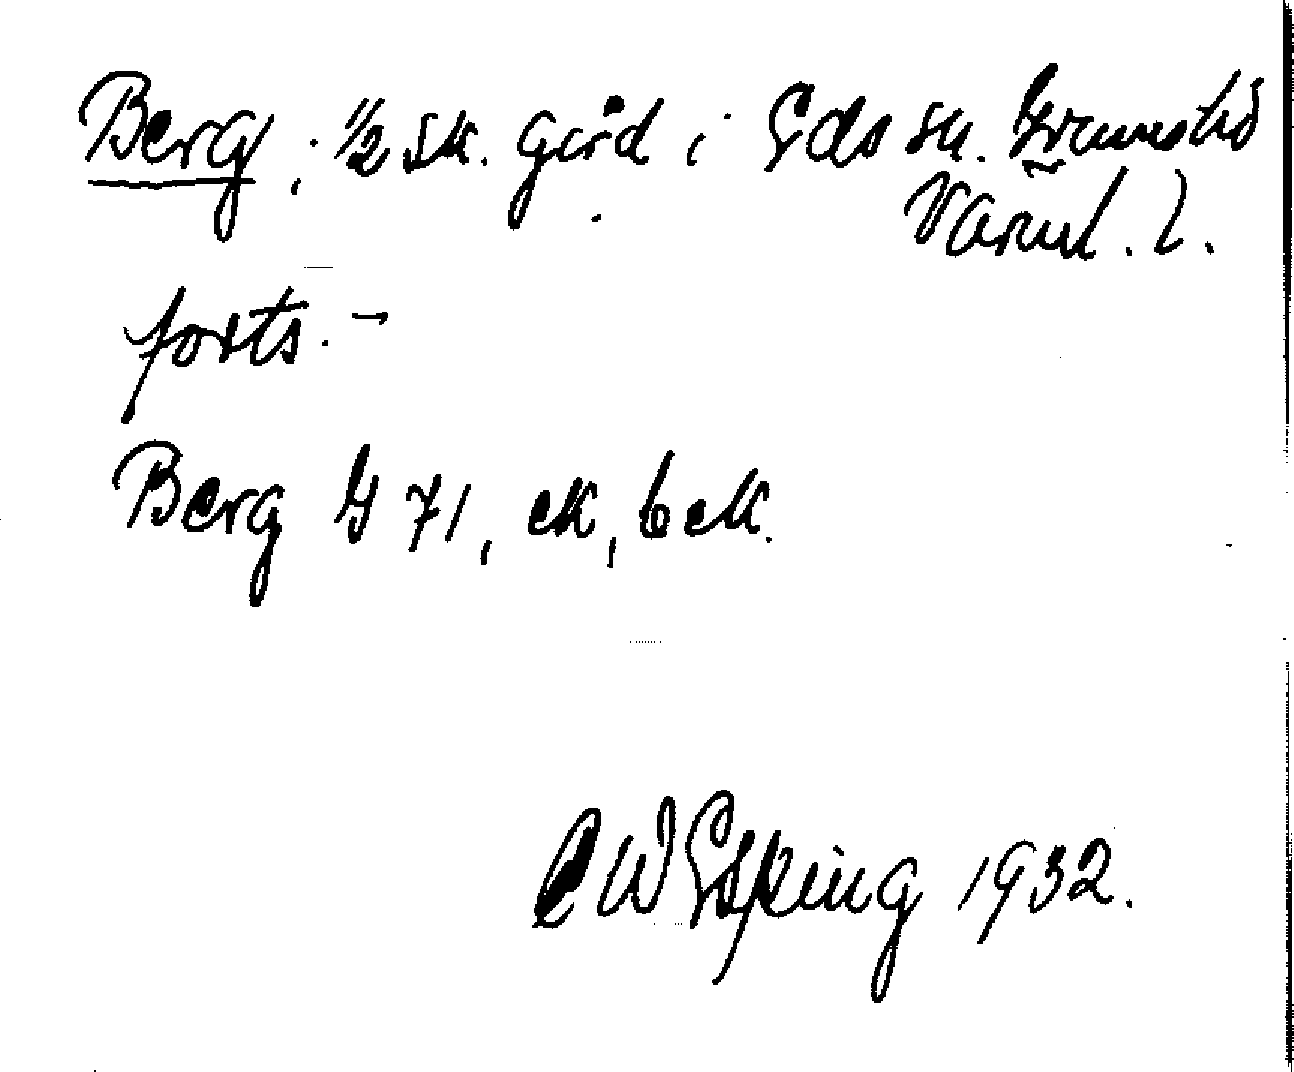 Berg, ; 1/2 sk. gård i Eds sn. Grums hd
Värml. l.
forts. –
Berg G 71, ek, 6 ek.
C W Esping 1932.